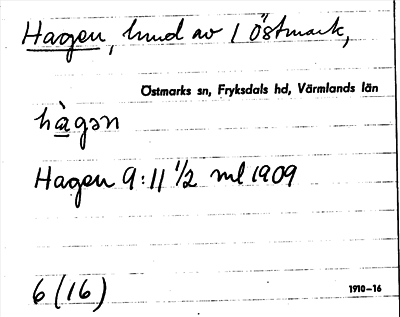 Hagen, hmd av 1 Östmark,
Östmarks sn, Fryksdals hd, Värmlands län
hàgən
Hagen 9:11 1/2 ml 1909
6 (16)
1910-16